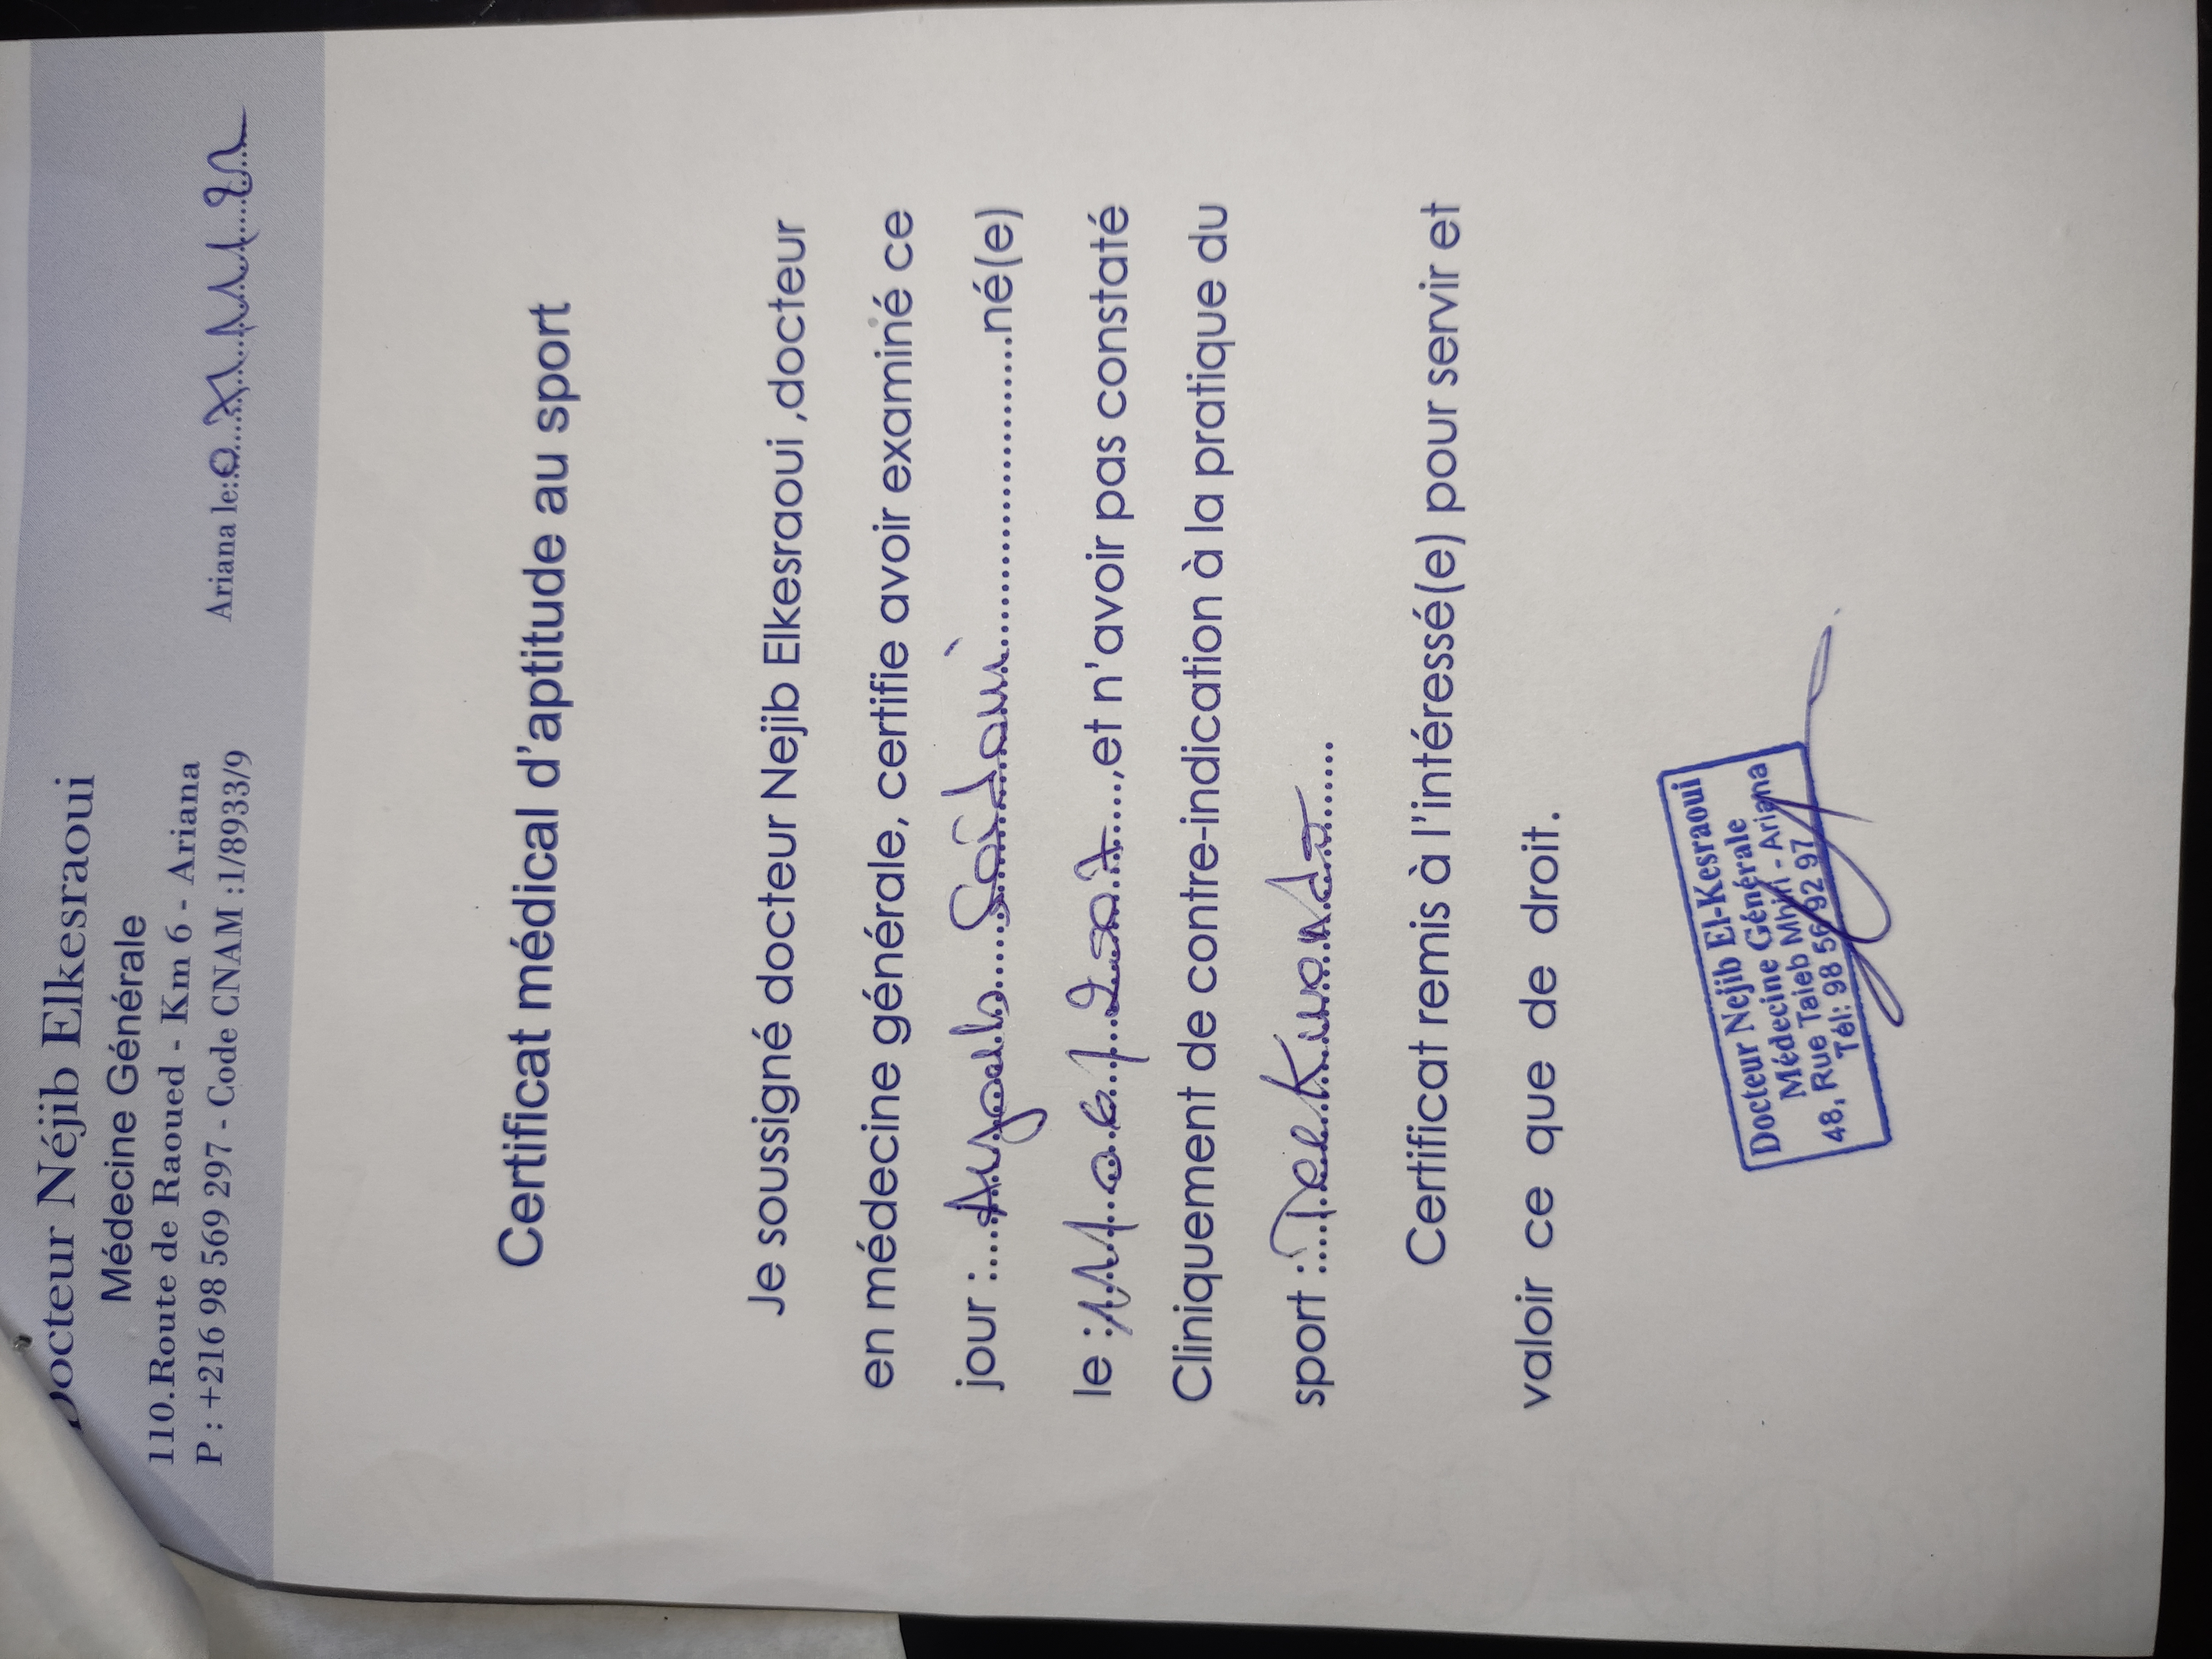 Docteur Néjib Elkesraoui
Médecine Générale
110.Route de Raoued - Km 6 - Ariana
P : +216 98 569 297 - Code CNAM :1/8933/9
Ariana le:
Certificat médical d'aptitude au sport
Je soussigné docteur Nejib Elkesraoui ,docteur
en médecine générale, certifie avoir examiné ce
jour : Saidani né(e)
le : ,et n'avoir pas constaté
Cliniquement de contre-indication à la pratique du
sport :
Certificat remis à l'intéressé(e) pour servir et
valoir ce que de droit.
Docteur Nejib El-Kesraoui
Médecine Générale
48, Rue Taieb Mhiri - Ariana
Tél: 98 56 92 97